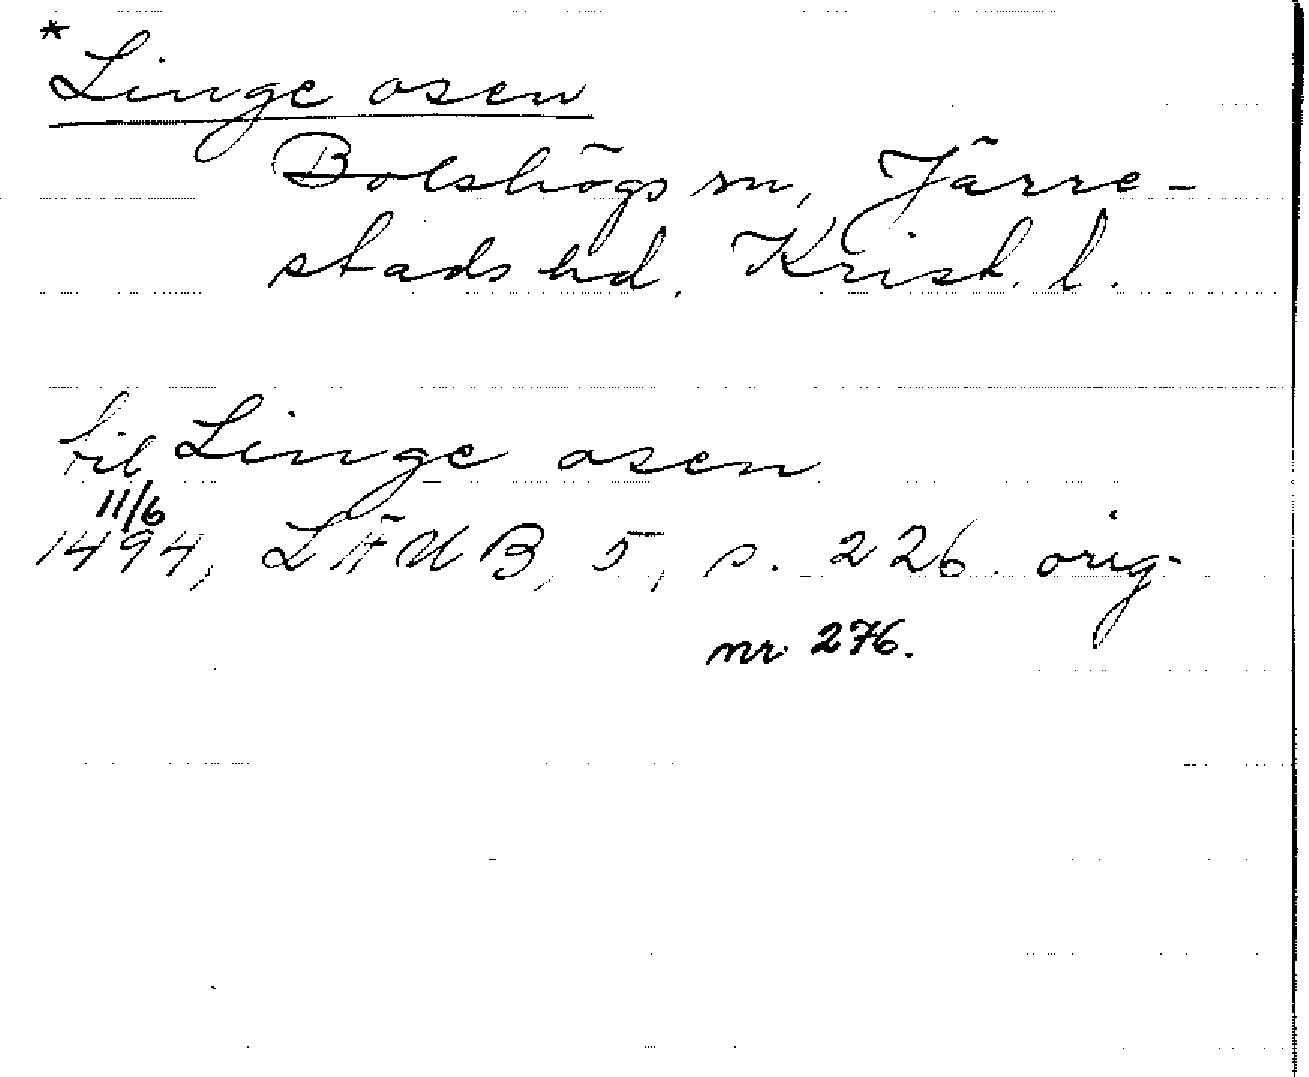 * Linge osen
Bolshögs sn, Järre-
stads hd. Krist. l.
til Linge osen
11/6
1494, LÄUB, 5, s. 226. orig.
nr 276.